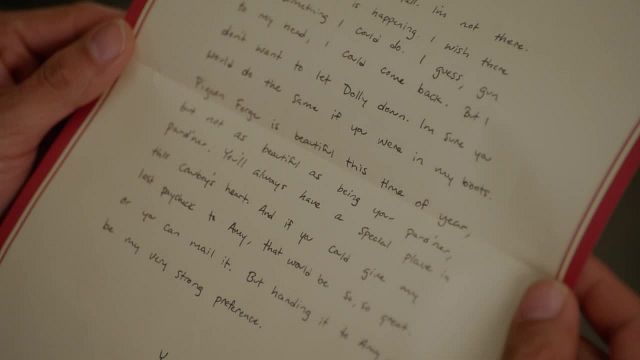 I'm not there.
is happening. I wish there
something I could do. I guess, gun
to my head, I could come back. But I
don't want to let Dolly down. I'm sure you
would do the same if you were in my boots.
Pigeon Forge is beautiful this time of year,
but not as beautiful as being your pard'ner,
pard'ner. You'll always have a special place in
this Cowboy's heart. And if you could give my
last paycheck to Amy, that would be so, so great.
or you can mail it. But handing it to Amy
be my very strong preference.